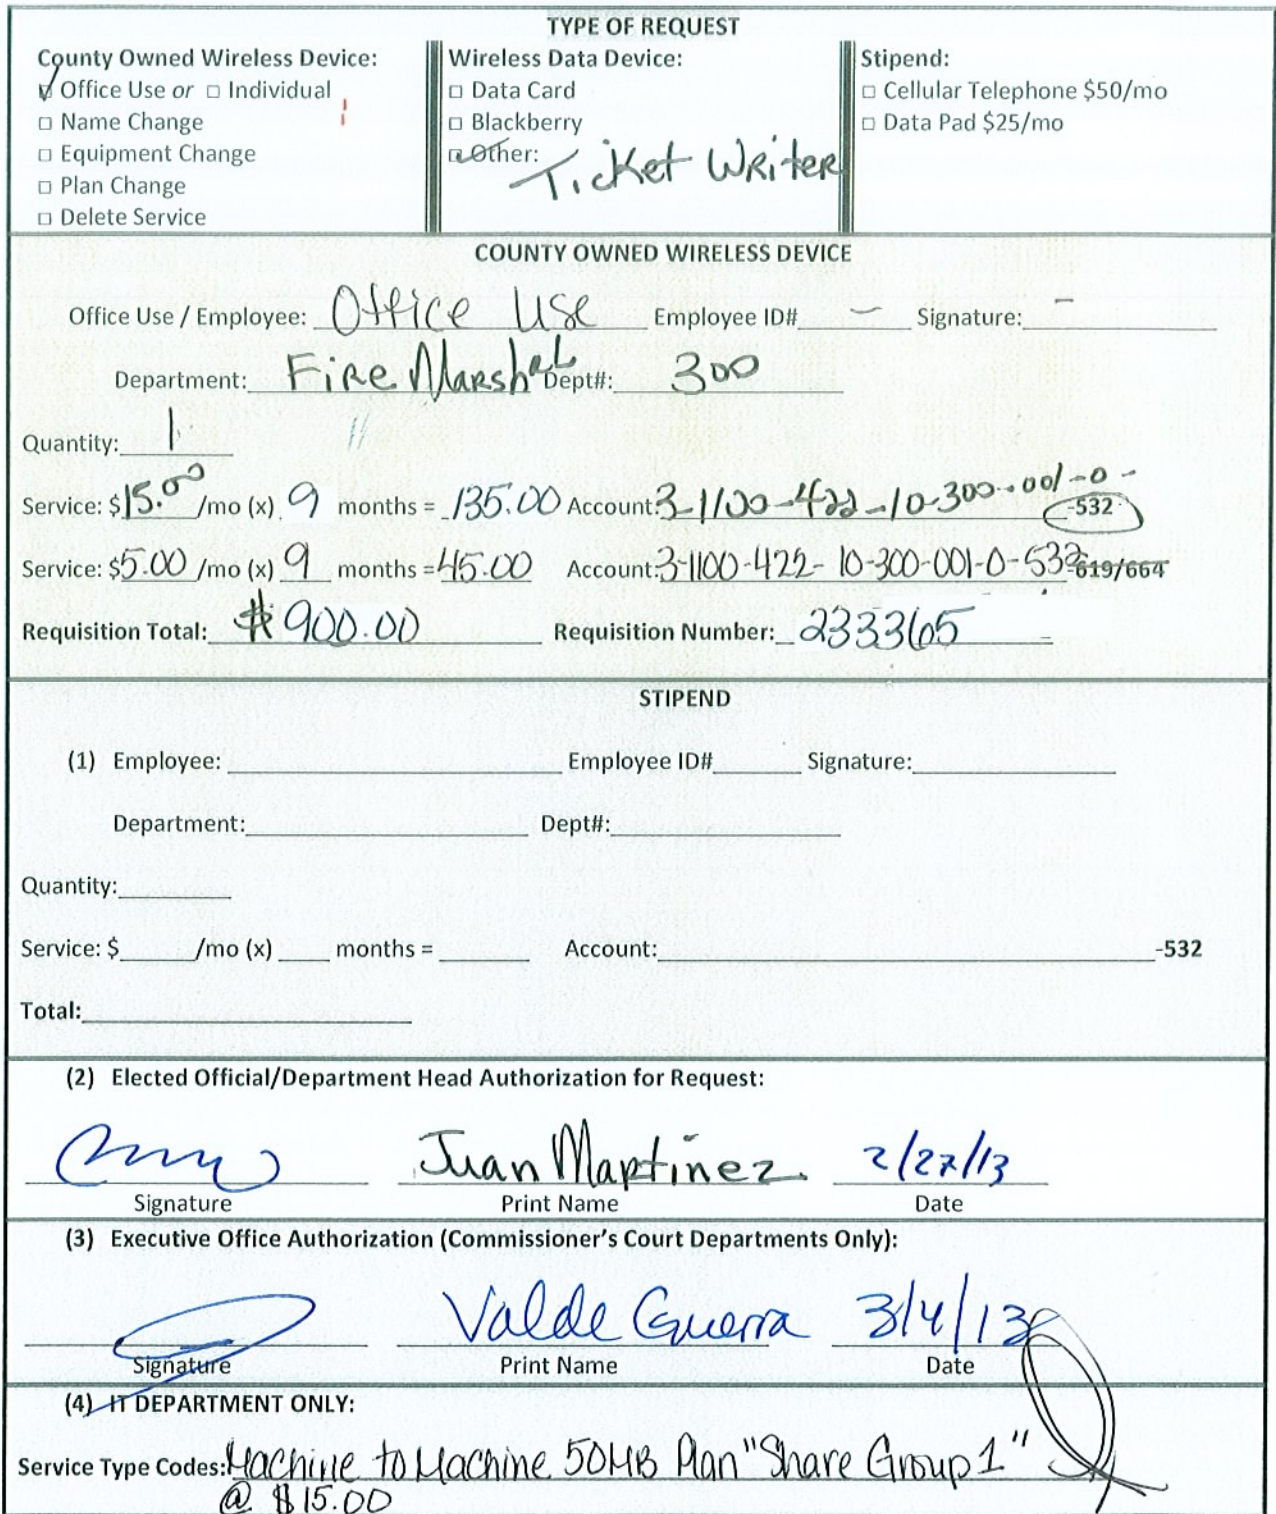 TYPE OF REQUEST
County Owned Wireless Device:
Office Use or □ Individual
□ Name Change
□ Equipment Change
□ Plan Change
□ Delete Service
Wireless Data Device:
□ Data Card
□ Blackberry
□ Other: Ticket Writer
Stipend:
□ Cellular Telephone $50/mo
□ Data Pad $25/mo
COUNTY OWNED WIRELESS DEVICE
Office Use / Employee: Office Use Employee ID# – Signature: –
Department: Fire Marshal Dept#: 300
Quantity: 1
Service: $15.00 /mo (x) 9 months = 135.00 Account: 3-1100-422-10-300-001-0-532
Service: $5.00 /mo (x) 9 months = 45.00 Account: 3-1100-422-10-300-001-0-532 -619/664
Requisition Total: $900.00 Requisition Number: 233365
STIPEND
(1) Employee: Employee ID# Signature:
Department: Dept#:
Quantity:
Service: $ /mo (x) months = Account: -532
Total:
(2) Elected Official/Department Head Authorization for Request:
Juan Martinez 2/27/13
Signature Print Name Date
(3) Executive Office Authorization (Commissioner's Court Departments Only):
Valde Guerra 3/4/13
Signature Print Name Date
(4) IT DEPARTMENT ONLY:
Service Type Codes: Machine to Machine 50MB Plan "Share Group 1"
@ $15.00